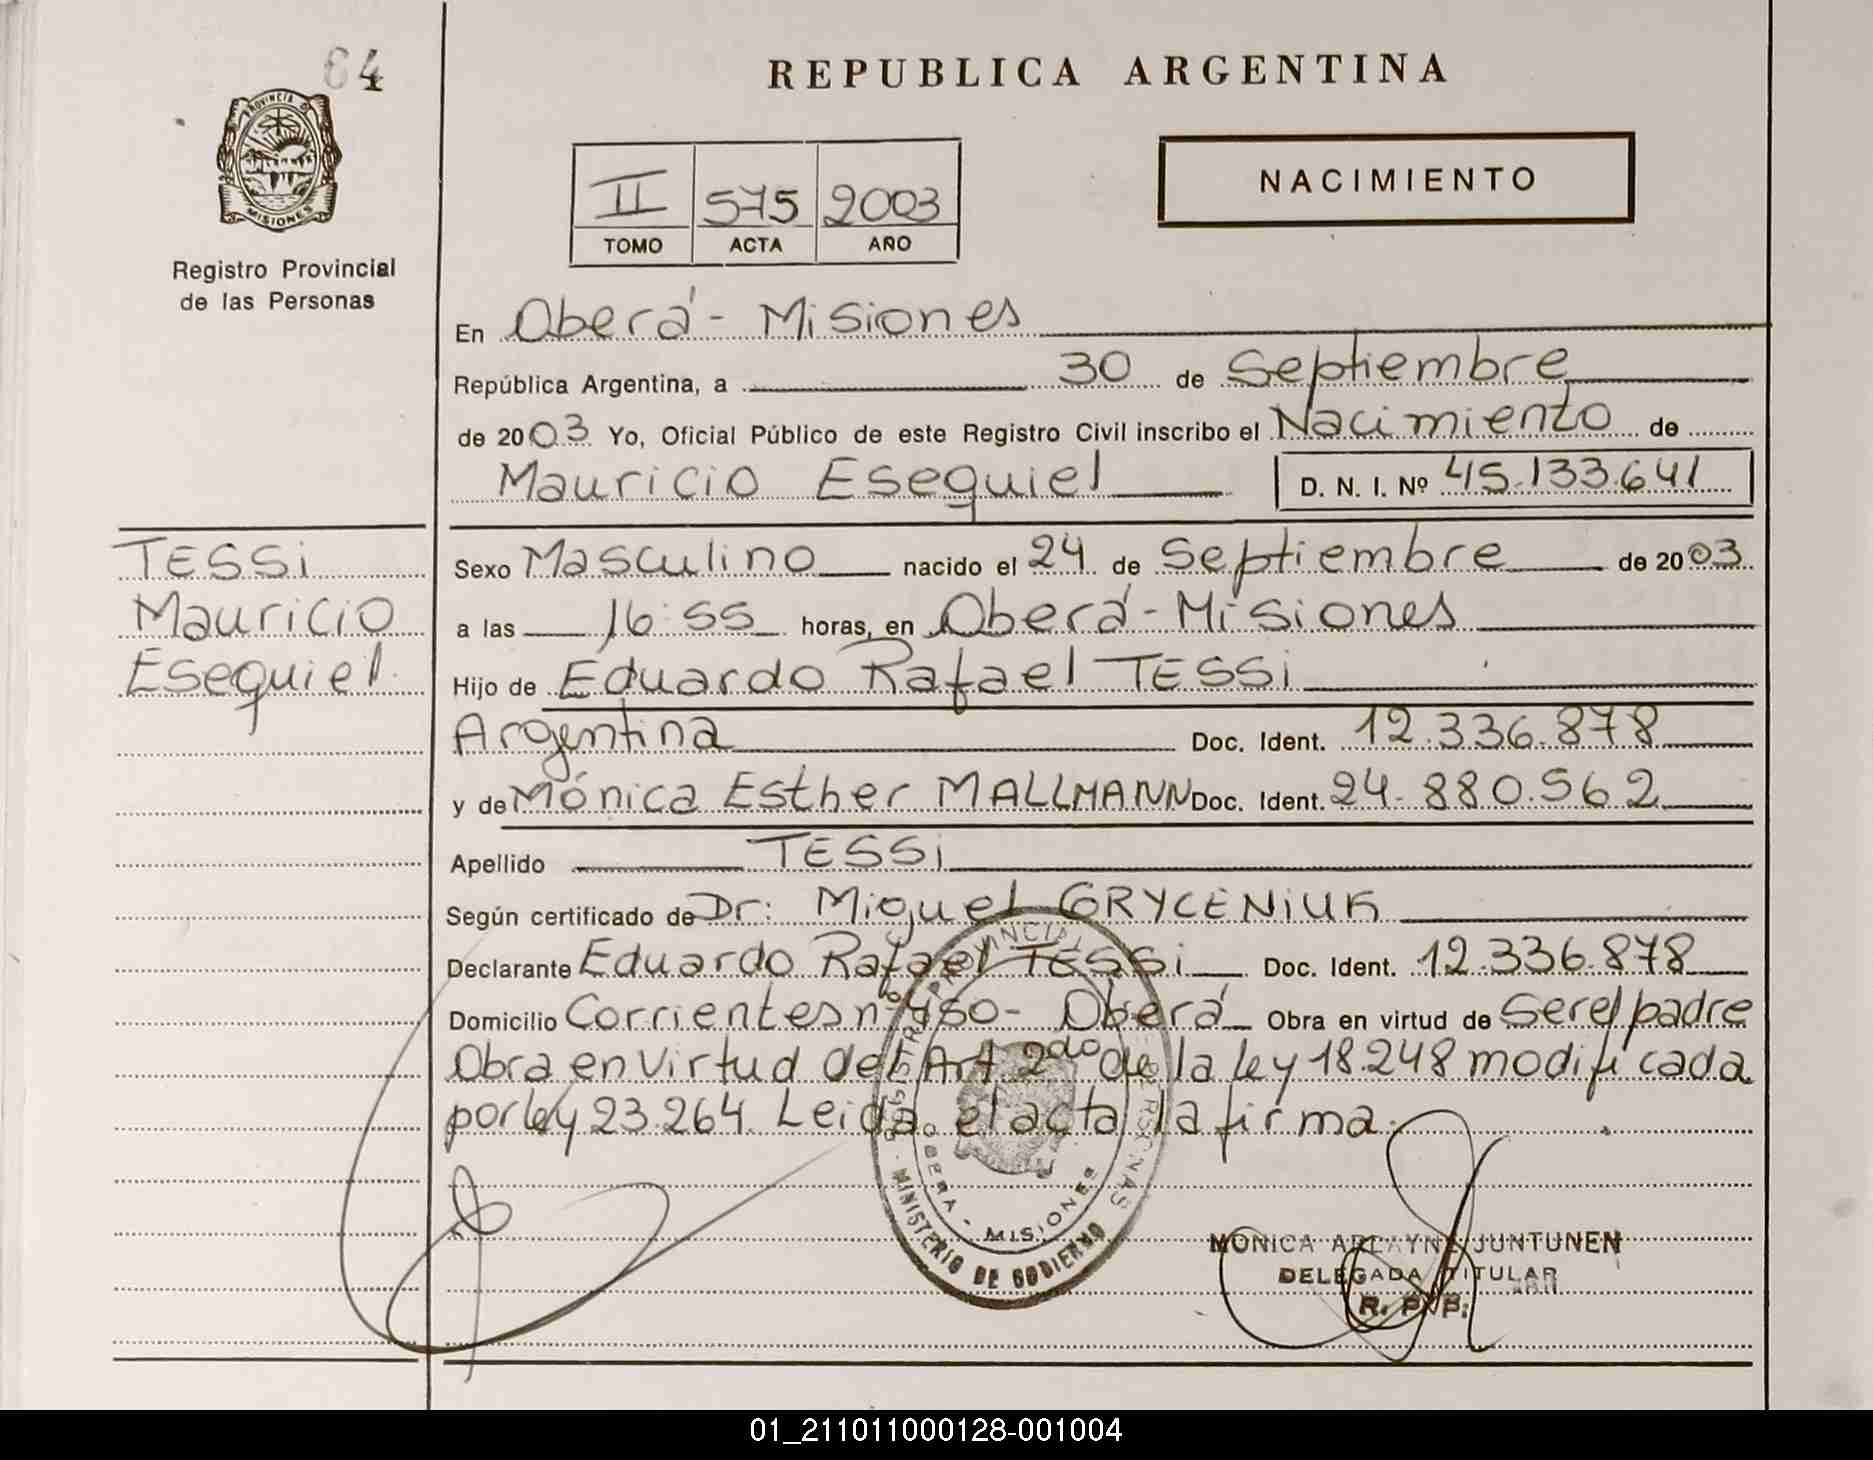 64
REPUBLICA ARGENTINA
PROVINCIA DE
MISIONES
Registro Provincial
de las Personas
II 575 2003
TOMO ACTA AÑO
NACIMIENTO
En Oberá - Misiones
República Argentina, a 30 de Septiembre
de 2003 Yo, Oficial Público de este Registro Civil inscribo el Nacimiento de
Mauricio Esequiel D. N. I. Nº 45.133.641
TESSi
Mauricio
Esequiel.
Sexo Masculino nacido el 24 de Septiembre de 2003
a las 16:55 horas, en Oberá - Misiones
Hijo de Eduardo Rafael TESSi
Argentina Doc. Ident. 12.336.878
y de Mónica Esther MALLMANN Doc. Ident. 24.880.562
Apellido TESSi
Según certificado de Dr: Miguel GRYCENiUK
Declarante Eduardo Rafael TESSi Doc. Ident. 12.336.878
Domicilio Corrientes nº 450 - Oberá Obra en virtud de Ser el padre
Obra en Virtud del Art 2do de la ley 18.248 modificada
por ley 23.264. Leida el acta la firma.
REGISTRO PROVINCIAL DE LAS PERSONAS
OBERA - MISIONES
MINISTERIO DE GOBIERNO
MONICA ARLAYNE JUNTUNEN
DELEGADA TITULAR
R. P. P.
01_211011000128-001004